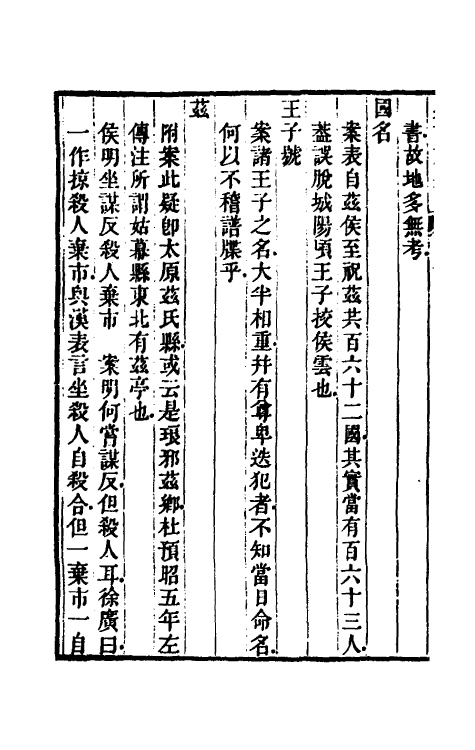 書故地多無考
國名
案表自茲侯至祝茲共百六十二國其實當有百六十三人
葢誤脫城陽頃王子挍侯雲也
王子號
案諸王子之名大半相重幷有尊卑迭犯者不知當日命名
何以不稽譜牒乎
茲
附案此疑卽太原茲氏縣或云是琅邪茲鄉杜預昭五年左
傳注所謂姑幕縣東北有茲亭也
侯明坐謀反殺人棄市　案明何嘗謀反但殺人耳徐廣曰
一作掠殺人棄市與漢表言坐殺人自殺合但一棄市一自